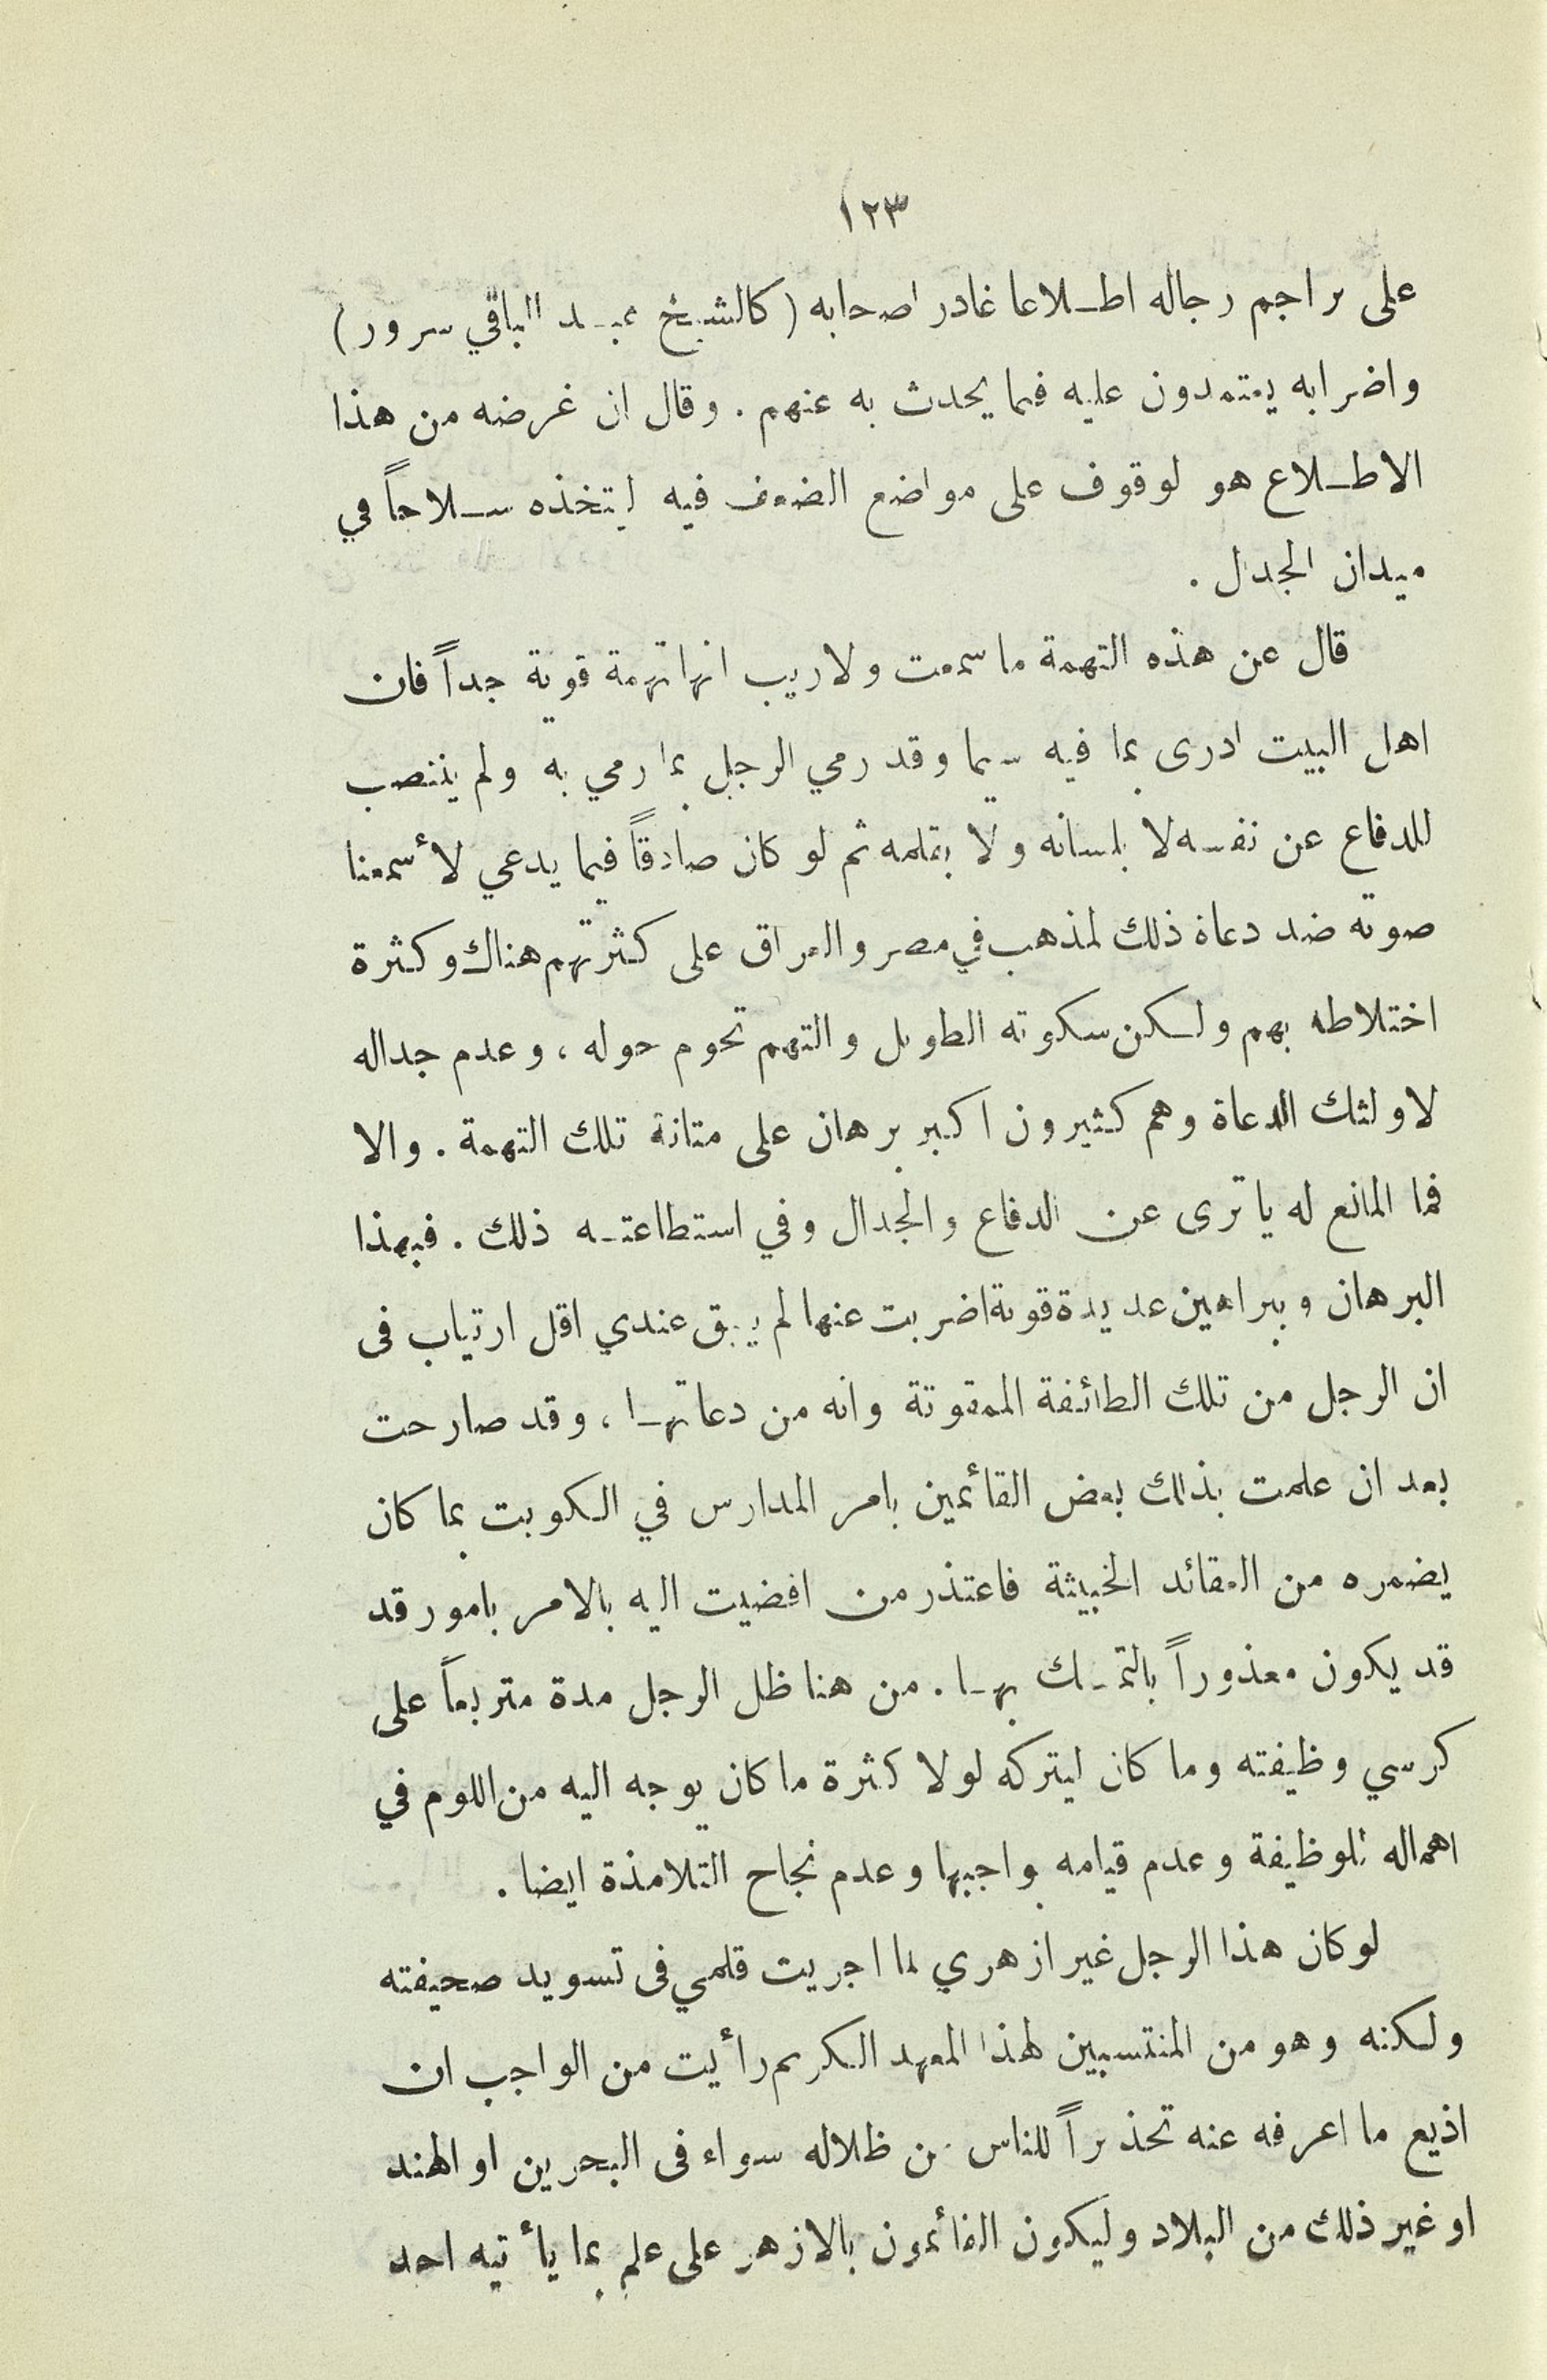 ١٢٣
على تراجم رجاله اطـلاعا غادر اصحابه (كالشيخ عبـد الباقي سرور)
واضرابه يعتمدون عليه فيما يحدث به عنهم . وقال ان غرضه من هذا
الاطـلاع هو لوقوف على مواضع الضعف فيه ليتخذه سـلاحاً في
ميدان الجدل .
قال عن هذه التهمة ما سمعت ولا ريب انها تهمة قوية جداً فان
اهل البيت ادرى بما فيه سيما وقد رمي الرجل بما رمي به ولم ينتصب
للدفاع عن نفسه لا بلسانه ولا بقلمه ثم لو كان صادقاً فيما يدعي لأسمعنا
صوته ضد دعاة ذلك لمذهب في مصر والعراق على كثرتهم هناك وكثرة
اختلاطه بهم ولـكن سكوته الطويل والتهم تحوم حوله ، وعدم جداله
لاولئك الدعاة وهم كثيرون اكبر برهان على متانة تلك التهمة . والا
فما المانع له يا ترى عن الدفاع والجدال وفي استطاعتـه ذلك . فبهذا
البرهان وببراهين عديدة قوية اضربت عنها لم يبق عندي اقل ارتياب فى
ان الرجل من تلك الطائفة الممقوتة وانه من دعاتهـا ، وقد صارحت
بعد ان علمت بذلك بعض القائمين بامر المدارس في الـكويت بما كان
يضمره من العقائد الخبيثة فاعتذر من افضيت اليه بالامر بامور قد
قد يكون معذوراً بالتمـسك بهـا . من هنا ظل الرجل مدة متربعاً على
كرسي وظيفته وما كان ليتركه لولا كثرة ما كان يوجه اليه من اللوم في
اهماله للوظيفة وعدم قيامه بواجبها وعدم نجاح التلامذة ايضا .
لو كان هذا الرجل غير ازهري لما اجريت قلمي فى تسويد صحيفته
ولـكنه وهو من المنتسبين لهذا المعهد الـكريم رأيت من الواجب ان
اذيع ما اعرفه عنه تحذيراً للناس من ظلاله سواء فى البحرين او الهند
او غير ذلك من البلاد وليكون القائمون بالازهر على علم بما يأتيه احد